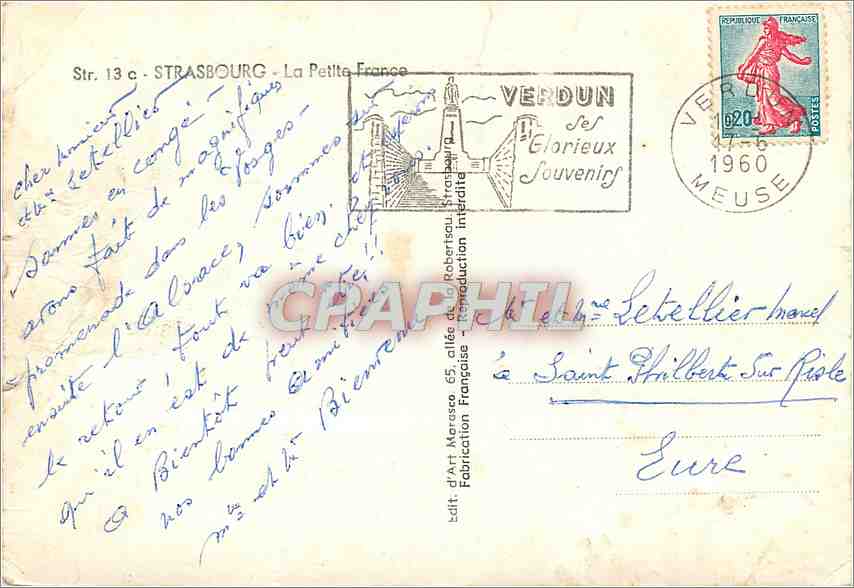 Str. 13 c - STRASBOURG - La Petite France
cher monsieur
et Mme Letellier
Sommes en congé -
avons fait de magnifiques
promenade dans les Vosges -
ensuite l'Alsace, sommes sur
le retour! tout va bien, et
qu'il en est de même chez
A Bientôt peut être!!
nos bonnes Amitiés
Mme et Mr Bienvenu
VERDUN
Ses
Glorieux
Souvenirs
REPUBLIQUE FRANÇAISE
0,20
POSTES
VERDUN
17-6
1960
MEUSE
Edit. d'Art Morasco. 65, allée de la Robertsau. Strasbourg
Fabrication Française - Reproduction interdite
CPAPHIL
Mr et Mme Letellier Marcel
à Saint Philbert Sur Risle
Eure